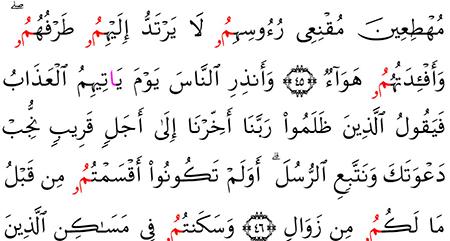 مُهْطِعِينَ مُقْنِعِى رُءُوسِهِمُۥ لَا يَرْتَدُّ إِلَيْهِمُۥ طَرْفُهُمُۥۖ
وَأَفْـِٔدَتُهُمُۥ هَوَآءٌ ۝٤٥ وَأَنذِرِ النَّاسَ يَوْمَ يَاتِيهِمُ الْعَذَابُ
فَيَقُولُ الَّذِينَ ظَلَمُواْ رَبَّنَا أَخِّرْنَا إِلَىٰ أَجَلٍ قَرِيبٍ نُّجِبْ
دَعْوَتَكَ وَنَتَّبِعِ الرُّسُلَۗ أَوَلَمْ تَكُونُواْ أَقْسَمْتُمُۥ مِن قَبْلُ
مَا لَكُمُۥ مِن زَوَالٍ ۝٤٦ وَسَكَنتُمُۥ فِى مَسَٰكِنِ الَّذِينَ